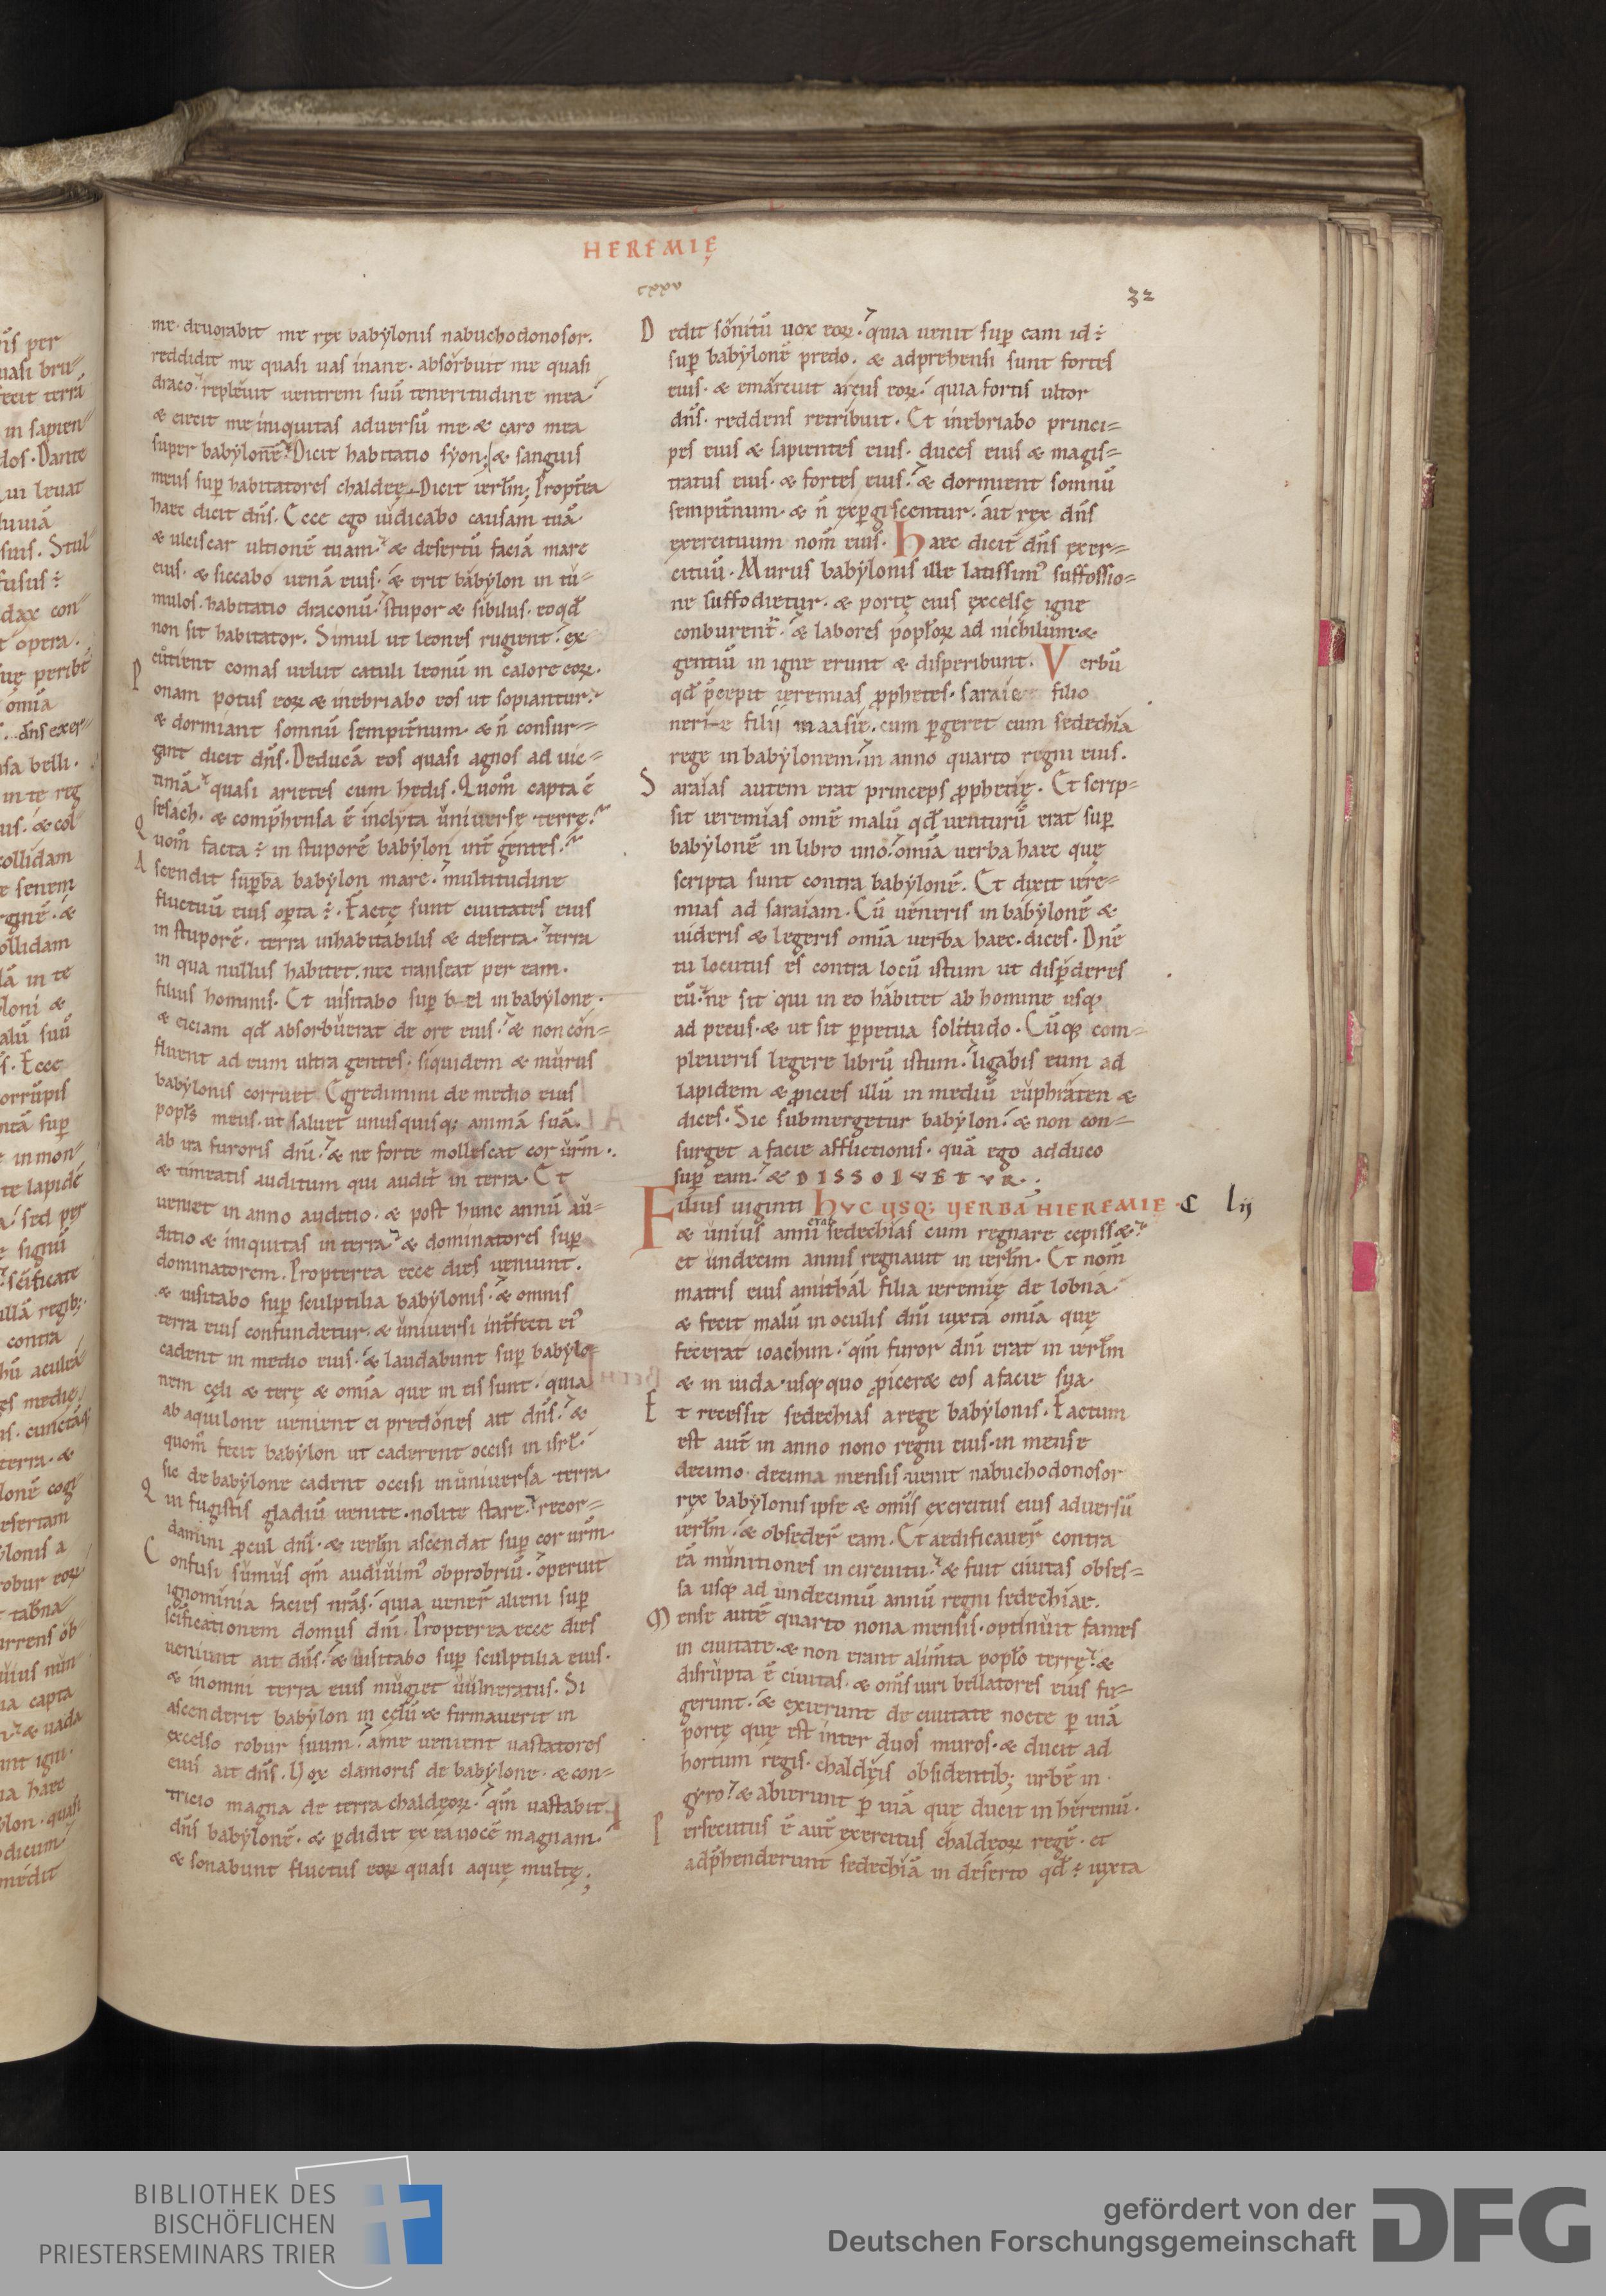 HEREMIĘ
cxxv
32
me. deuorabit me rex babylonis nabuchodonosor.
reddidit me quasi uas inane. absorbuit me quasi
draco. repleuit uentrem suū teneritudine mea
& eiecit me iniquitas aduersū me. & caro mea
super babylonē. Dicit habitatio syon. & sanguis
meus sup habitatores chaldeę. Dicit ierlm; Propterea
haec dicit dns. Ecce ego iudicabo causam tuā
& ulciscar ultionē tuam. & desertū faciā mare
eius. & siccabo uenā eius. & erit babylon in tu=
mulos. habitatio draconū. stupor & sibilus. eoqd
non sit habitator. Simul ut leones rugient. ex
cutient comas uelut catuli leonū in calore eoꝝ.
Ponam potus eoꝝ & inebriabo eos ut sopiantur.
& dormiant somnū sempitnum. & n̄ consur=
gant dicit dns. Deducā eos quasi agnos ad uic=
timā. quasi arietes cum hedis. Quom capta ē
sesach. & comphensa ē inclyta uniuersę terrę.
Quom facta ÷ in stuporē babylon int gentes.
Ascendit supba babylon mare. multitudine
fluctuū eius opta ÷. Factę sunt ciuitates eius
in stuporē. terra inhabitabilis & deserta. terra
in qua nullus habitet. nec transeat per eam.
filius hominis. Et uisitabo sup bel in babylone.
& eiciam qd absorbuerat de ore eius. & non con=
fluent ad eum ultra gentes. siquidem & murus
babylonis corruet. Egredimini de medio eius
popls meus. ut saluet unusquisq; animā suā.
ab ira furoris dni. & ne forte mollescat cor urm.
& timeatis auditum qui audit in terra. Et
ueniet in anno auditio. & post hunc annū au=
ditio & iniquitas in terra. & dominatores sup
dominatorem. Propterea ecce dies ueniunt.
& uisitabo sup sculptilia babylonis. & omnis
terra eius confundetur. & uniuersi intfecti ei'
cadent in medio eius. & laudabunt sup babylo=
nem cęli & terę & omia que in eis sunt. quia
ab aquilone uenient ei predones ait dns. &
quom fecit babylon ut caderent occisi in isrl.
sic de babylone cadent occisi in uniuersa terra.
Qui fugistis gladiū uenite. nolite stare. recor=
damini pcul dni. & ierlm ascendat sup cor urm.
Confusi sumus qm audiuim' obprobriū. operuit
ignominia facies nras. quia uener alieni sup
scificationem domus dni. Propterea ecce dies
ueniunt ait dns. & uisitabo sup sculptilia eius.
& in omni terra eius mugiet uulneratus. Si
ascenderit babylon in cęlū & firmauerit in
excelso robur suum. a me uenient uastatores
eius ait dns. Uox clamoris de babylone. & con=
tricio magna de terra chaldęoꝝ. qm uastabit
dns babylonē. & pdidit ex ea uocē magnam.
& sonabunt fluctus eoꝝ quasi aquę multę;
Dedit sonitū uox eoꝝ. quia uenit sup eam id ÷
sup babylonē predo. & adprehensi sunt fortes
eius. & emarcuit arcus eoꝝ. quia fortis ultor
dns. reddens retribuit. Et inebriabo princi=
pes eius & sapientes eius. duces eius & magis=
tratus eius. & fortes eius. & dormient somnū
sempitnum. & n̄ expgiscentur. ait rex dns
exercituum nom eius. Haec dicit dns exer=
cituū. Murus babylonis ille latissim' suffossio=
ne suffodietur. & portę eius excelsę igne
conburent. & labores poploꝝ ad nichilum. &
gentiū in igne erunt & disperibunt. Verbū
qd pcepit ieremias pphetes. saraie filio
nerie filii maasie. cum pgeret cum sedechia
rege in babylonem. in anno quarto regni eius.
Saraias autem erat princeps pphetię. Et scrip=
sit ieremias omē malū qd uenturū erat sup
babylonē in libro uno. omia uerba haec quę
scripta sunt contra babylonē. Et dixit iere=
mias ad saraiam. Cū ueneris in babylonē &
uideris & legeris omia uerba haec. dices. Dne
tu locutus es contra locū istum ut dispderes
eū. ne sit qui in eo habitet ab homine usq
ad pecus. & ut sit ppetua solitudo. Cūq com=
pleueris legere librū istum. ligabis eum ad
lapidem & picies illū in mediū euphraten &
dices. Sic submergetur babylon. & non con=
surget a facie afflictionis. quā ego adduco
sup eam. & DISSOLVETVR.;
Filius uiginti HVC VSQ; VERBA HIEREMIE. C lij
& unius anni erat sedechias cum regnare cepiss&.
et undecim annis regnauit in ierlm. Et nom
matris eius amithal filia ieremię de lobna
& fecit malū in oculis dni iuxta omia quę
fecerat ioachim. qm furor dni erat in ierlm
& in iuda. usq quo picer& eos a facie sua.
Et recessit sedechias a rege babylonis. Factum
est aut in anno nono regni eius. in mense
decimo. decima mensis. uenit nabuchodonosor
rex babylonis ipse & omis exercitus eius aduersū
ierlm. & obseder eam. Et aedificauer contra
eā munitiones in circuitu. & fuit ciuitas obses=
sa usq ad undecimū annū regni sedechiae.
Mense autē quarto nona mensis. optinuit fames
in ciuitate. & non erant alimta poplo terrę. &
disrupta ē ciuitas. & oms uiri bellatores eius fu=
gerunt. & exierunt de ciuitate nocte p uiā
portę quę est inter duos muros. & ducit ad
hortum regis. chaldęis obsidentib; urbē in
gyro. & abierunt p uiā que ducit in heremū.
Persecutus ē aut exercitus chaldeoꝝ regē. et
adphenderunt sedechiā in deserto qd ÷ iuxta
BIBLIOTHEK DES
BISCHÖFLICHEN
PRIESTERSEMINARS TRIER
gefördert von der
Deutschen Forschungsgemeinschaft
DFG